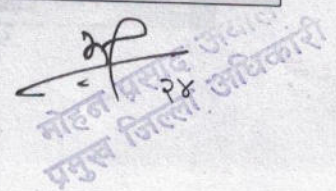 २४
मोहन प्रसाद
प्रमुख जिल्ला अधिकारी